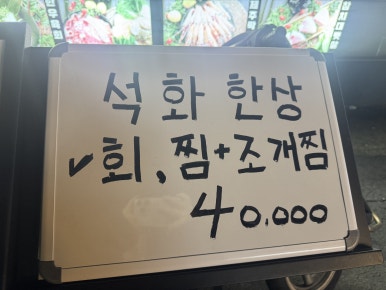 석화한상
✓회,찜+조개찜
40.000